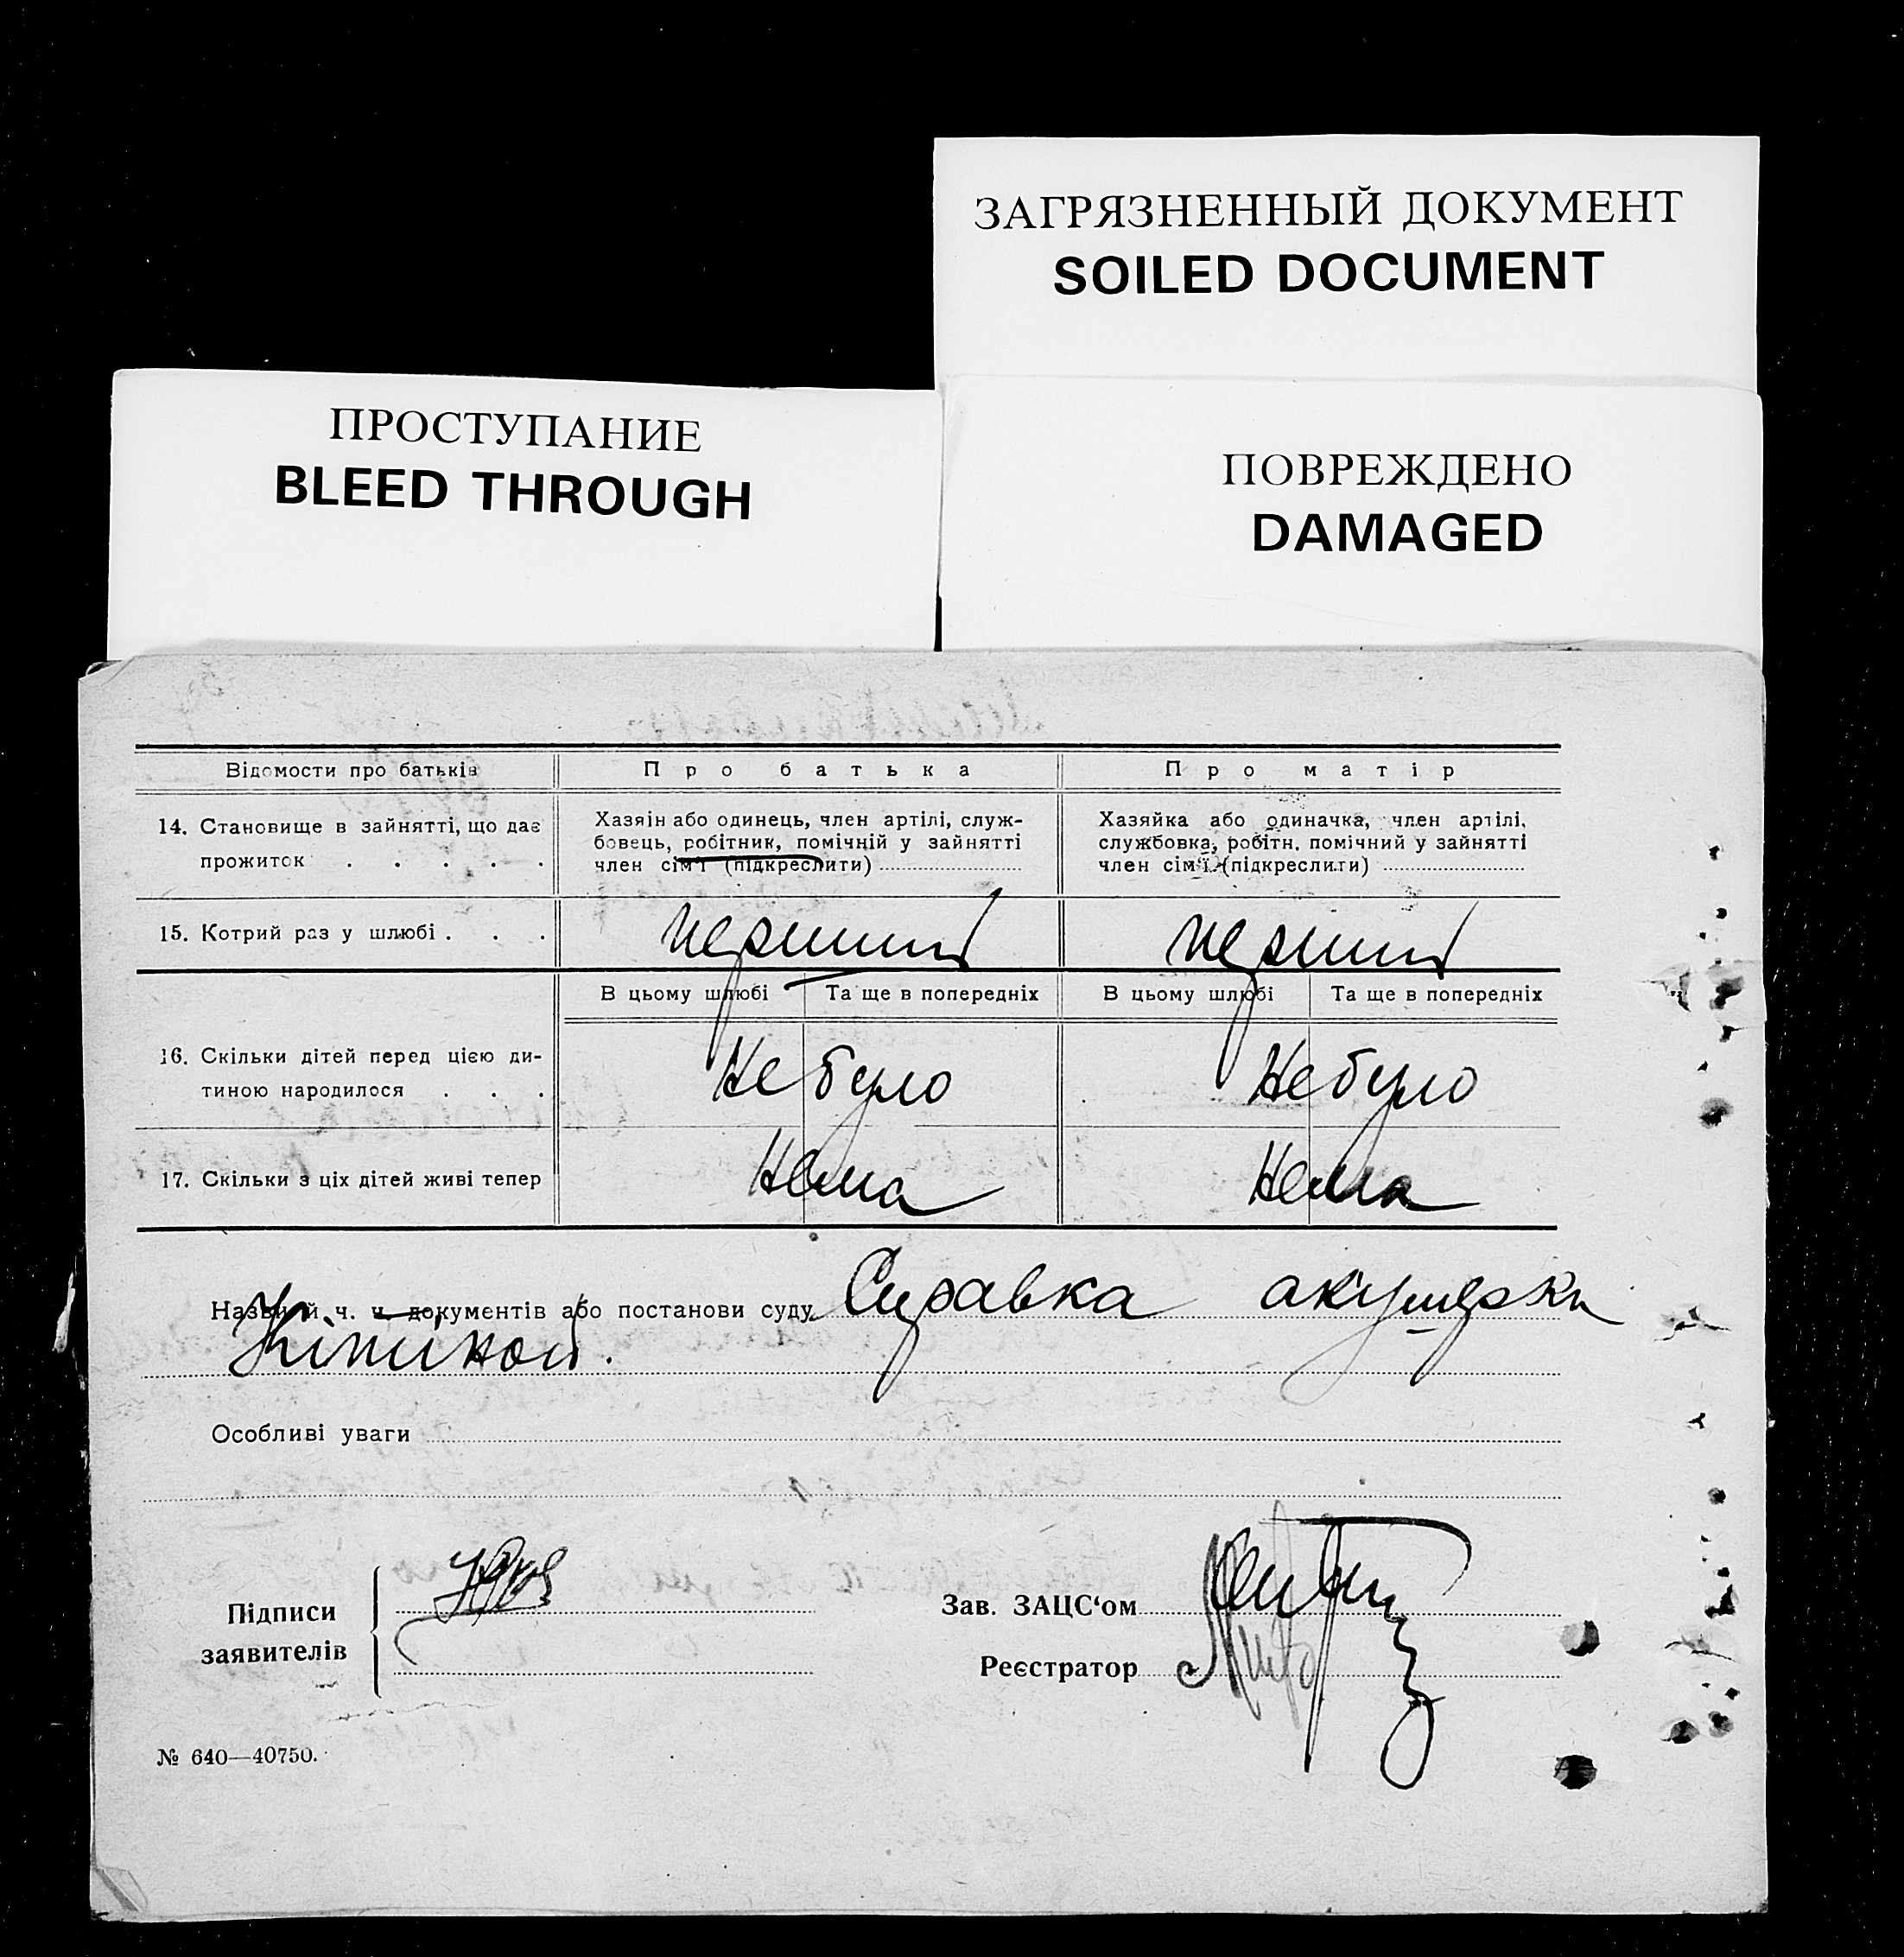 ЗАГРЯЗНЕННЫЙ ДОКУМЕНТ
SOILED DOCUMENT
ПРОСТУПАНИЕ
BLEED THROUGH
ПОВРЕЖДЕНО
DAMAGED
Відомости про батьків
Про батька
Про матір
14. Становище в зайнятті, що дає
прожиток . . . . .
Хазяін або одинець, член артілі, служ-
бовець, робітник, помічній у зайнятті
член сім'ї (підкреслити)
Хазяйка або одиначка, член артілі,
службовка, робітн. помічний у зайнятті
член сім'ї (підкреслити)
15. Котрий раз у шлюбі . . .
перший
перший
В цьому шлюбі
Та ще в попередніх
В цьому шлюбі
Та ще в попередніх
16. Скільки дітей перед цією ди-
тиною народилося . . .
Не було
Не було
17. Скільки з ціх дітей живі тепер
Нема
Нема
Назва й ч. ч. документів або постанови суду Справка акушерки
Особливі уваги
Підписи
заявителів
Зав. ЗАЦС‘ом
Реєстратор
№ 640—40750.